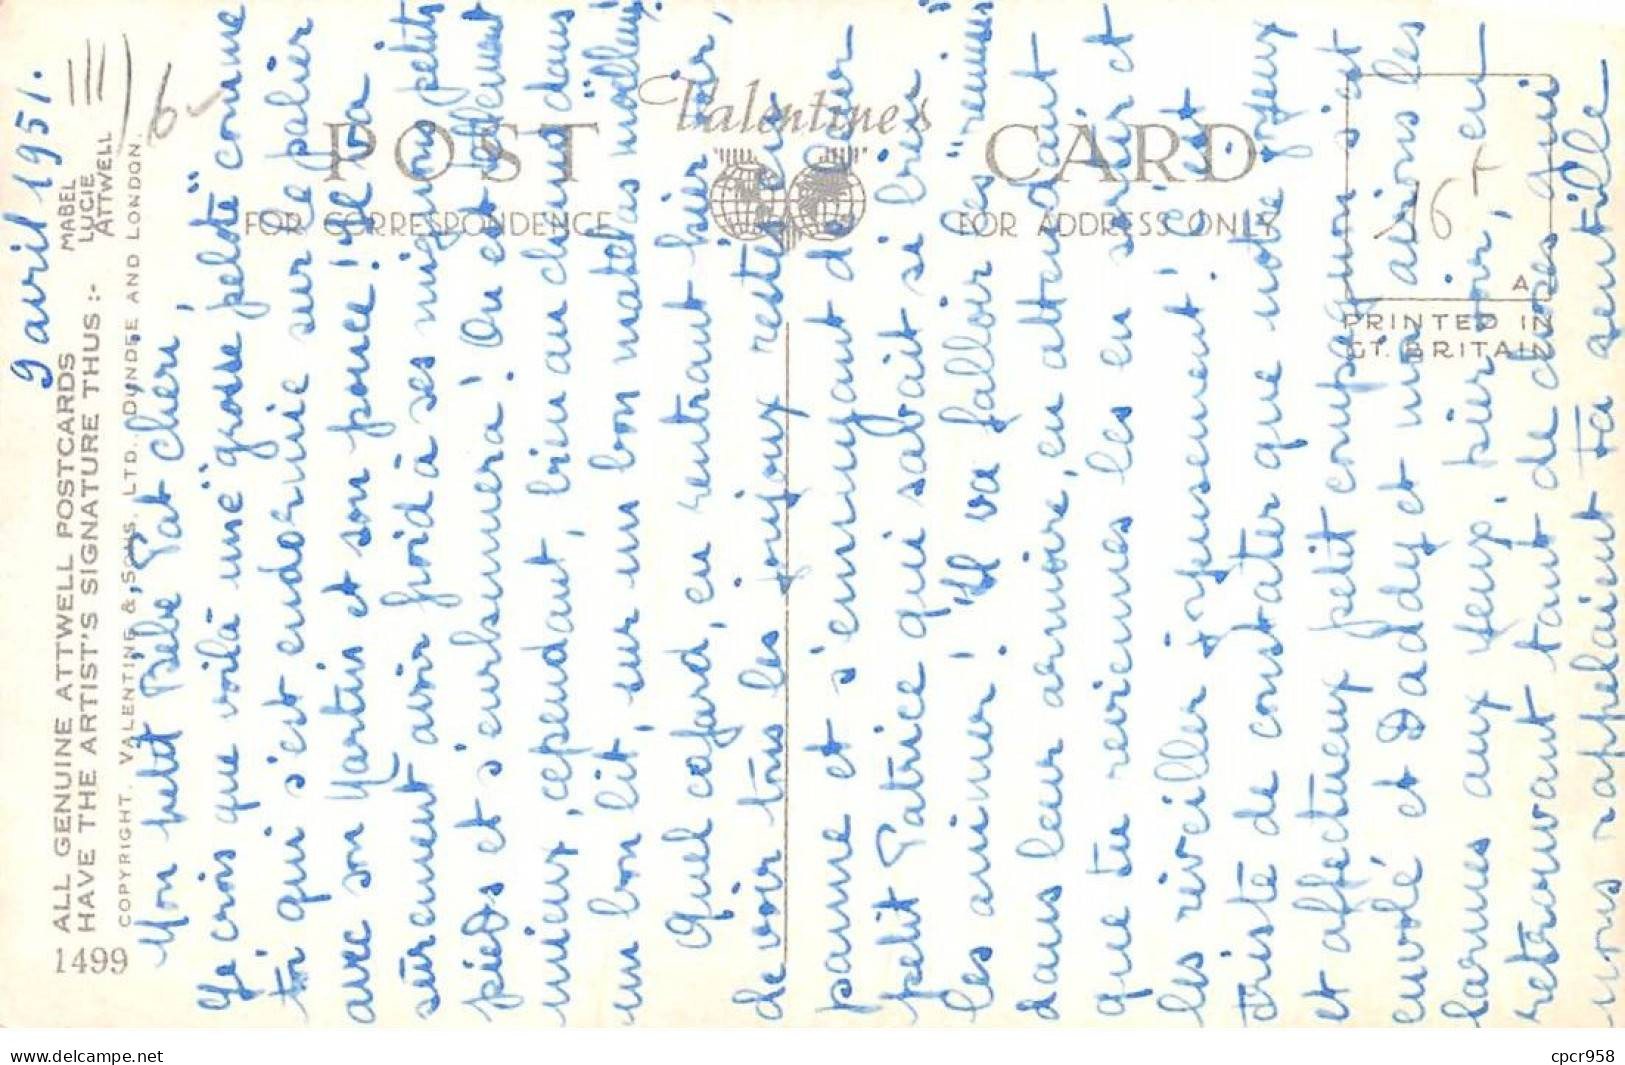 9 avril 1951.
Mon petit Bébé Pat chéri,
Je crois que voilà une "grosse pelote" comme
toi qui s'est endormie sur le palier
avec son Martin et son pouce! Il va
sûrement avoir froid à ses mignons petits
pieds et s'enrhumera! On est tellement
mieux, cependant, bien au chaud dans
un bon lit, sur un bon matelas moelleux!
Quel cafard, en rentrant hier soir,
de voir tous les joujoux restés en
panne et s'ennuyant de leur
petit Patrice qui savait si bien
les animer! Il va falloir les "remiser"
dans leur armoire, en attendant
que tu reviennes les en sortir et
les réveiller joyeusement! C'est
triste de constater que notre joyeux
et affectueux petit compagnon s'est
envolé et Daddy et moi avions les
larmes aux yeux, hier soir, en
retrouvant tant de choses qui
nous rappelaient ta gentille
ALL GENUINE ATTWELL POSTCARDS
HAVE THE ARTIST'S SIGNATURE THUS :-
MABEL
LUCIE
ATTWELL
COPYRIGHT. VALENTINE & SONS. LTD. DUNDEE AND LONDON.
1499
6
Valentine's
POST CARD
FOR CORRESPONDENCE
FOR ADDRESS ONLY
16
A
PRINTED IN
GT. BRITAIN
www.delcampe.net
cpcr958